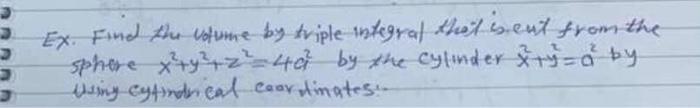 Ex. Find the volume by triple integral that is cut from the
sphere x²+y²+z²=4a² by the cylinder x²+y²=a² by
Using cylindrical coordinates:-